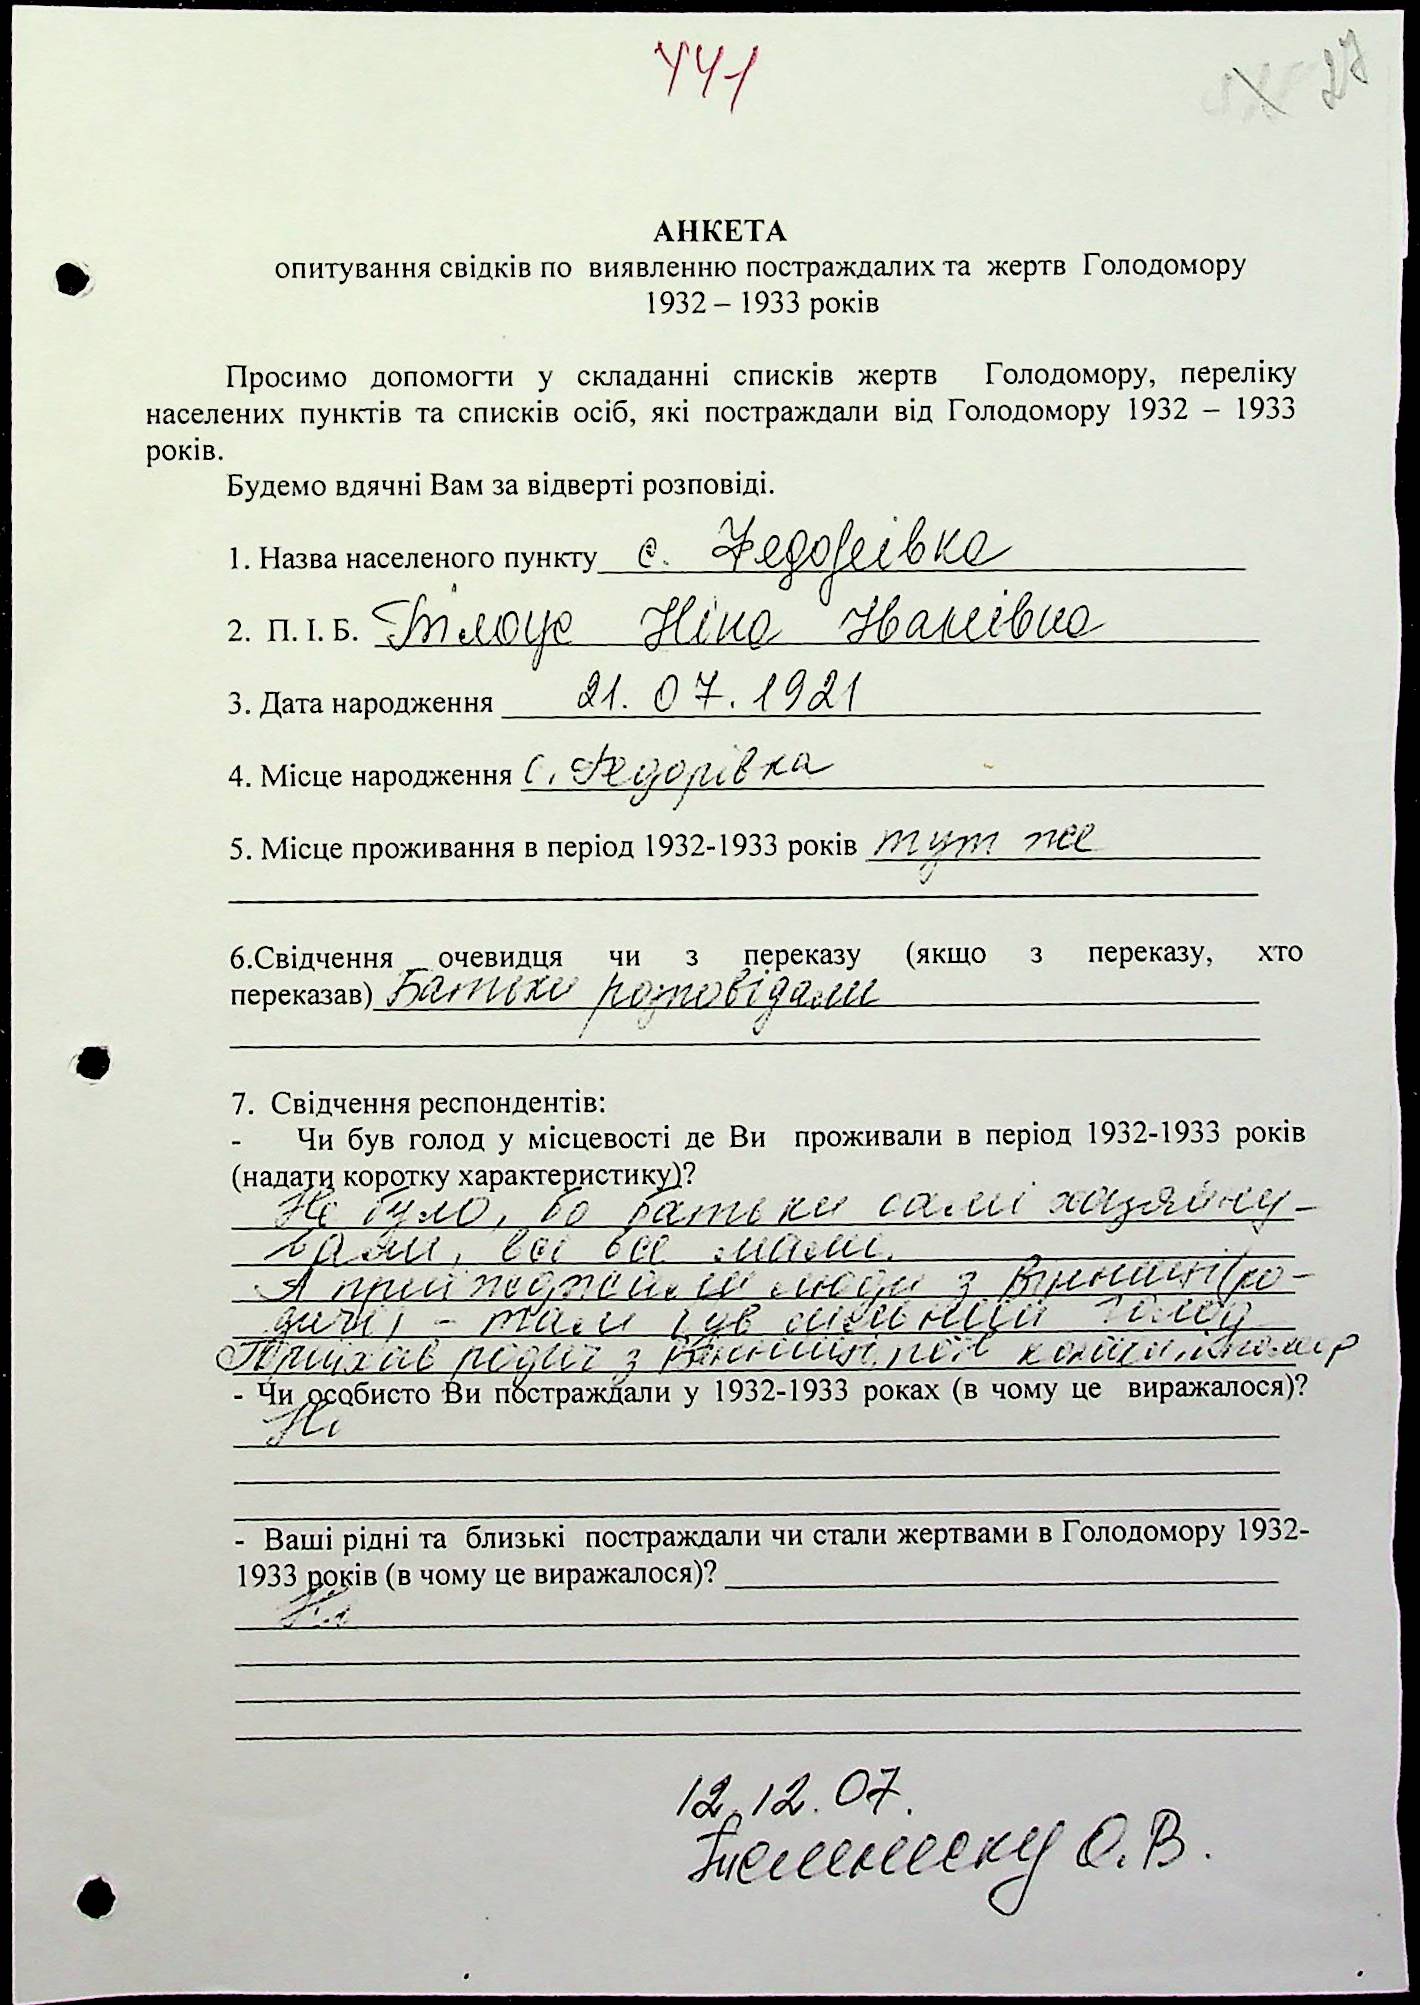 441
27
АНКЕТА
опитування свідків по виявленню постраждалих та жертв Голодомору
1932 – 1933 років
Просимо допомогти у складанні списків жертв Голодомору, переліку
населених пунктів та списків осіб, які постраждали від Голодомору 1932 – 1933
років.
Будемо вдячні Вам за відверті розповіді.
1. Назва населеного пункту с. Федорівка
2. П. І. Б. Білоус Ніна Іванівна
3. Дата народження 21.07.1921
4. Місце народження с. Федорівка
5. Місце проживання в період 1932-1933 років тут же
6.Свідчення очевидця чи з переказу (якщо з переказу, хто
переказав) Батьки розповідали
7. Свідчення респондентів:
- Чи був голод у місцевості де Ви проживали в період 1932-1933 років
(надати коротку характеристику)?
Не було, бо батьки самі хазяйну-
вали, всі все мали.
А приїжджали люди з Вінниці (ро-
дичі) - там був сильний голод
Приїхав родич з Вінниці, поїв і помер
- Чи особисто Ви постраждали у 1932-1933 роках (в чому це виражалося)?
Ні
- Ваші рідні та близькі постраждали чи стали жертвами в Голодомору 1932-
1933 років (в чому це виражалося)?
Ні
12.12.07.
О.В.